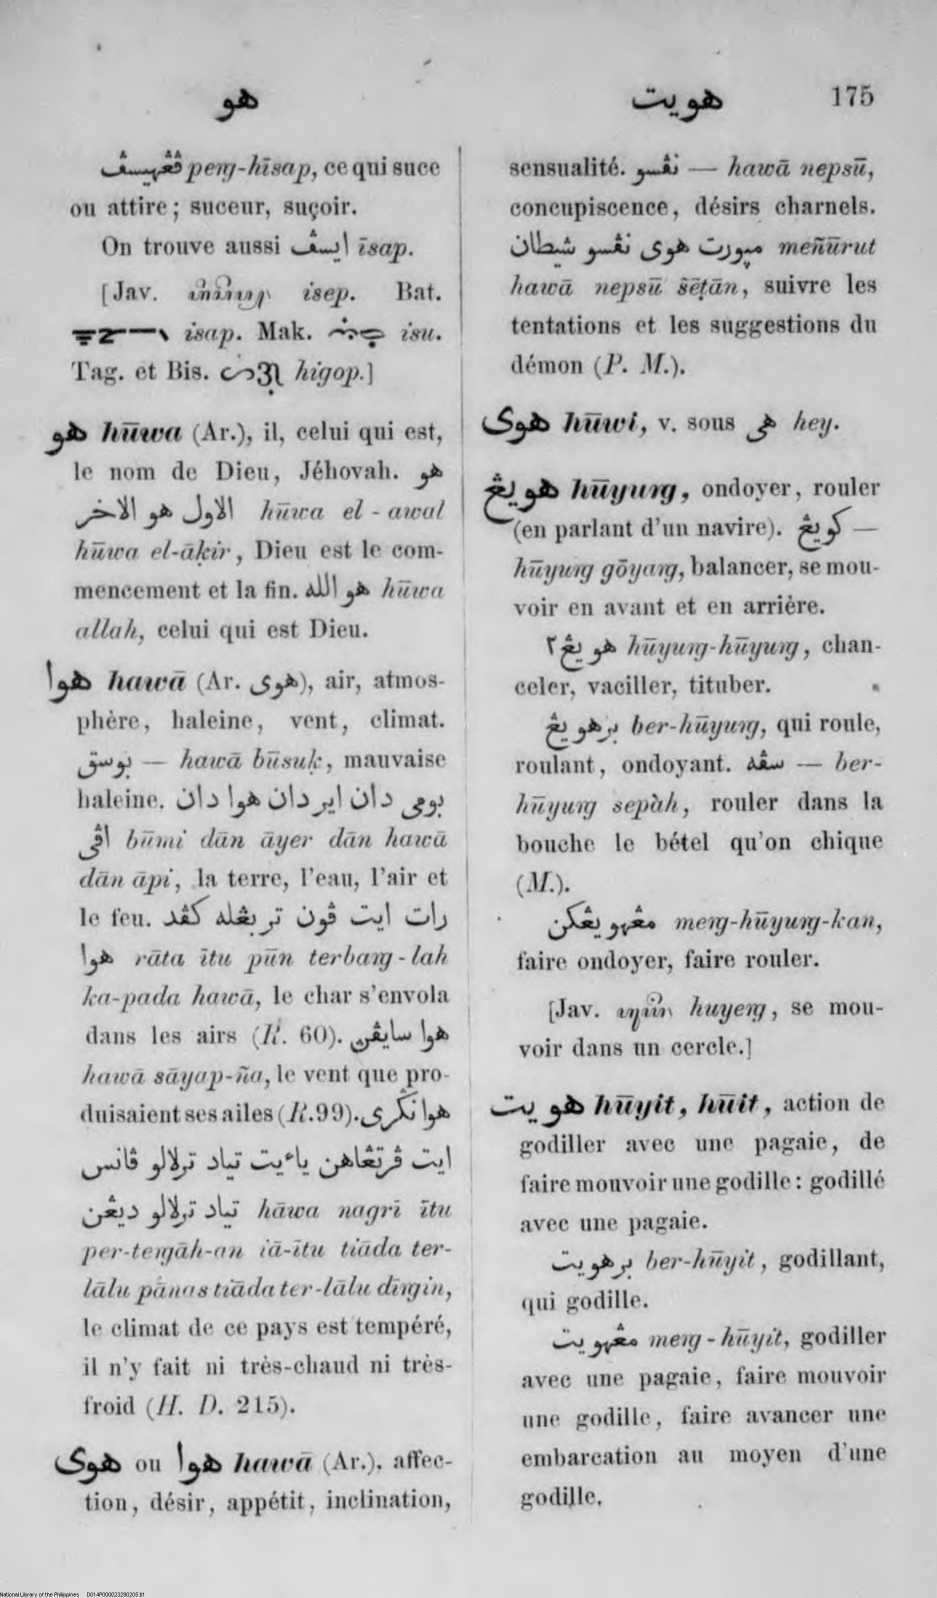 هو
هويت 175
ڤڠهيسڤ peng-hīsap, ce qui suce
ou attire; suceur, suçoir.
On trouve aussi ايسڤ īsap.
[Jav. isep. Bat.
isap. Mak. isu.
Tag. et Bis. higop.]
هو hūwa (Ar.), il, celui qui est,
le nom de Dieu, Jéhovah. هو
الاول هو الاخر hūwa el-awal
hūwa el-āḳir, Dieu est le com-
mencement et la fin. هو الله hūwa
allah, celui qui est Dieu.
هوا hawā (Ar. هوى), air, atmos-
phère, haleine, vent, climat.
بوسق — hawā būsuḳ, mauvaise
haleine. بومي دان اير دان هوا دان
اڤي būmi dān āyer dān hawā
dān āpi, la terre, l'eau, l'air et
le feu. رات ايت ڤون تربڠله كڤد
هوا rāta ītu pūn terbang-lah
ka-pada hawā, le char s'envola
dans les airs (R. 60). هوا سايڤن
hawā sāyap-ña, le vent que pro-
duisaient ses ailes (R. 99). هوا نگري
ايت ڤرتڠاهن ياءيت تياد ترلالو ڤانس
تياد ترلالو ديڠن hāwa nagrī ītu
per-tengāh-an iā-ītu tiāda ter-
lālu pānas tiāda ter-lālu dīngin,
le climat de ce pays est tempéré,
il n'y fait ni très-chaud ni très-
froid (H. D. 215).
هوى ou هوا hawā (Ar.), affec-
tion, désir, appétit, inclination,
sensualité. نڤسو — hawā nepsū,
concupiscence, désirs charnels.
مپورت هوى نڤسو شيطان meñūrut
hawā nepsū šēṭān, suivre les
tentations et les suggestions du
démon (P. M.).
هوى hūwi, v. sous هي hey.
هويڠ hūyung, ondoyer, rouler
(en parlant d'un navire). كويڠ —
hūyung gōyang, balancer, se mou-
voir en avant et en arrière.
هويڠ٢ hūyung-hūyung, chan-
celer, vaciller, tituber.
برهويڠ ber-hūyung, qui roule,
roulant, ondoyant. سڤه — ber-
hūyung sepàh, rouler dans la
bouche le bétel qu'on chique
(M.).
مڠهويڠكن meng-hūyung-kan,
faire ondoyer, faire rouler.
[Jav. huyeng, se mou-
voir dans un cercle.]
هويت hūyit, hūit, action de
godiller avec une pagaie, de
faire mouvoir une godille: godillé
avec une pagaie.
برهويت ber-hūyit, godillant,
qui godille.
مڠهويت meng-hūyit, godiller
avec une pagaie, faire mouvoir
une godille, faire avancer une
embarcation au moyen d'une
godille.
National Library of the Philippines